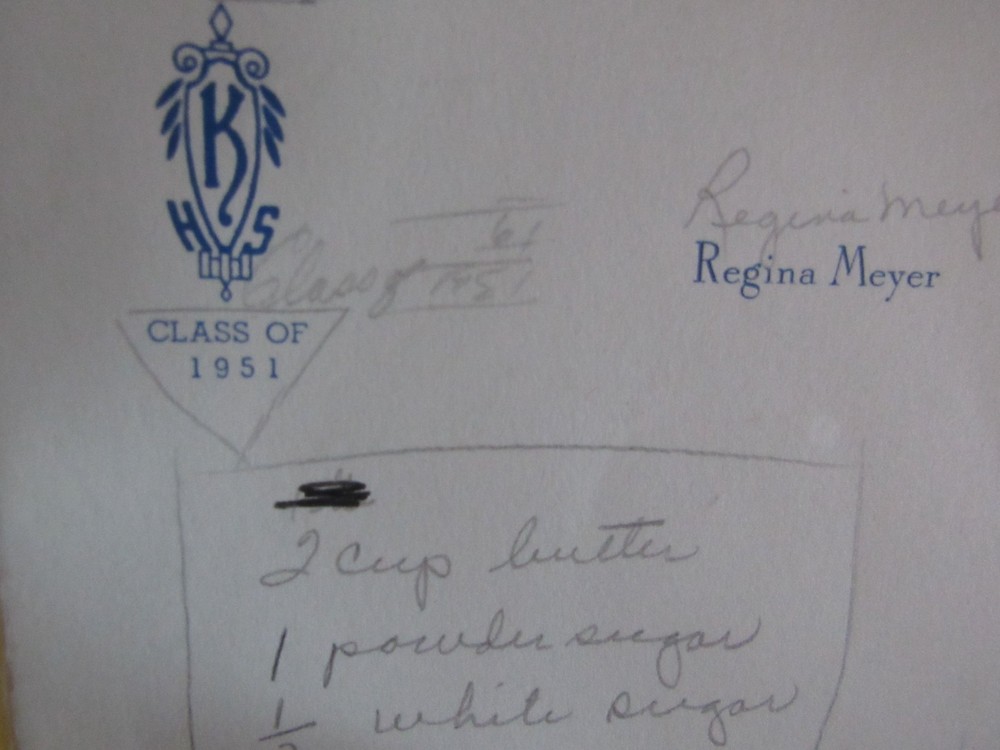 K
H S
61
Class of 1951
Regina Meye
Regina Meyer
CLASS OF
1951
2 cup butter
1 powder sugar
1/2 white sugar